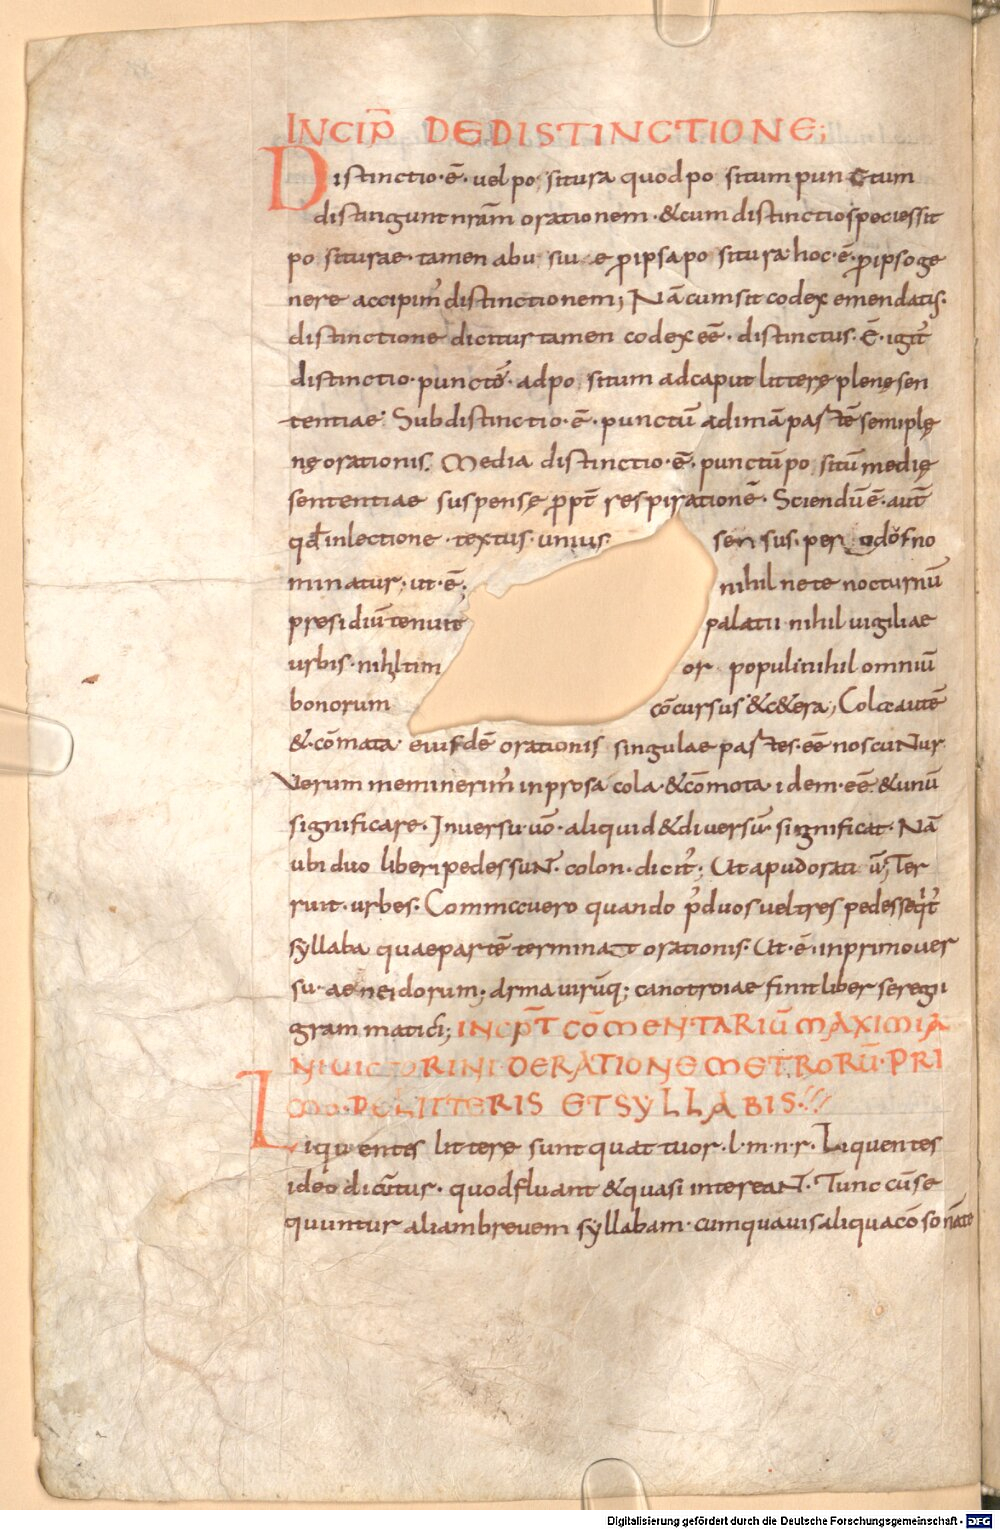 INCIP̄ DE DISTINCTIONE;
Distinctio·ē· uel positura quod positum punctum
distingunt nr̄am orationem·&cum distinctio species sit
positurae· tamen abusiue p̱ ipsa positura·hoc·ē· p̱ ipso ge
nere accipim̄ distinctionem; Nā cum sit codex emendatis·
distinctione dicitur tamen codex eē̄· distinctus· ē· igit̄
distinctio· punctū· ad positum ad caput litterę plenę sen
tentiae· Subdistinctio·ē· punctū ad imā partē semiplę
nę orationis. Media distinctio·ē· punctū positū medię
sententiae suspensę ꝓpt̄ respirationē· Sciendū ē· aut̄
qđ in lectione· textus· unius sensus· periodos no
minatur· ut·ē· nihil ne te nocturnū
presidiū tenuit palatii· nihil uigiliae
urbis· nihil tim or populi nihil omniū
bonorum cōcursus &c&era; Colœ autē
&·cōmata· eiusdē orationis singulae partes· eē noscuntur
Verum meminerim̄ in prosa cola·&cōmota· idem·eē·&unū
significare· In uersu ūo· aliquid & diuersū· significat· Nā
ubi duo liberi pedes sunt· colon· dicit̄; Ut apud oratiū; Ter
ruit· urbes· Commœ uero quando p̄ duos uel tres pedes seqit̄
syllaba quae partē terminat orationis· Ut·ē· in primo uer
su· aeneidorum· Arma uirūq; cano troiae finit liber seregii
grammatici; INCPT̄ CŌMENTARIŪ MAXIMIA
NI UICTORINI· DE RATIONE METRORŪ· PRI
MO· DE LITTERIS ET SYLLABIS·
Liquentes litterę sunt quattuor· l·m·n·r· Liquentes
ideo dicūtur· quod fluant & quasi intereant· Tunc cū se
quuntur aliam breuem syllabam· cumquauis aliqua cōsonāte